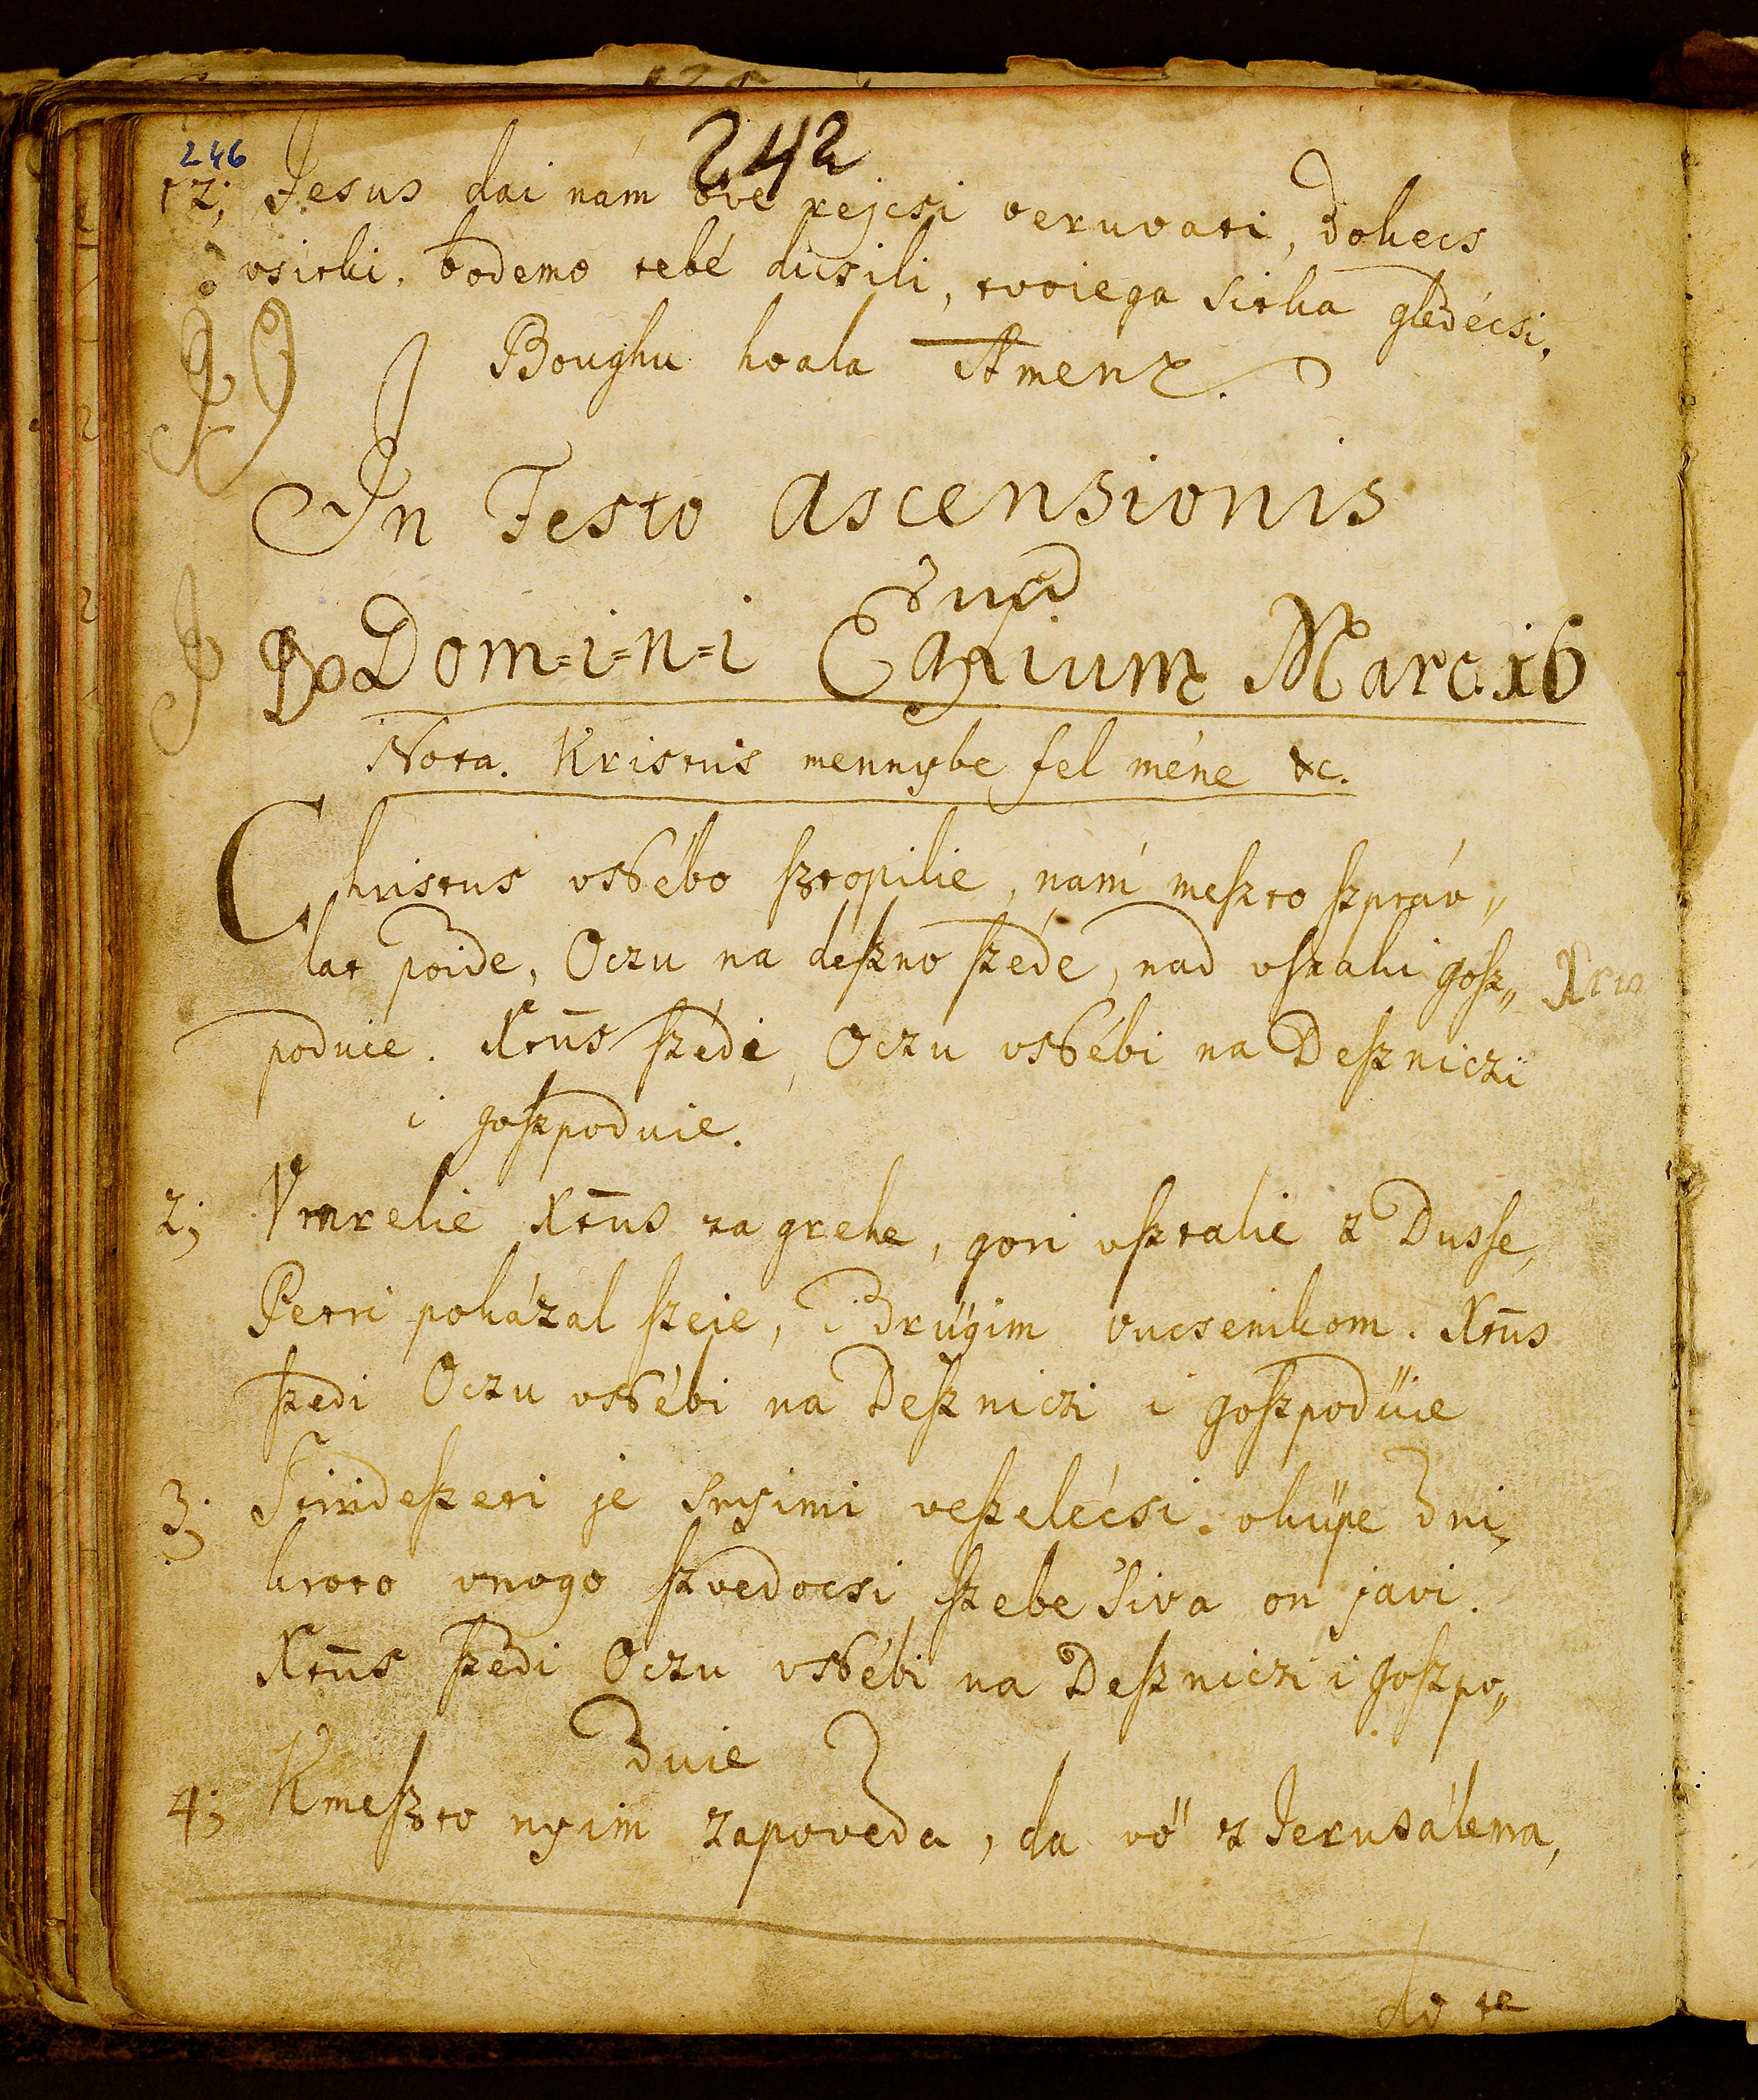 246
242
12; Jesus dai nám ove rejcsi veruvati, dokecs
vsitki, bodemo tebé dicsili, tvoiega Sitka gledécsi,
Boughu hvala Amen.
In Festo Ascensionis
Domini Marc. 16
Nota. Kristus mennybe fel méne &c.
Christus vNébo ſztopilie, nám meſzto ſzpráv„
lat poide, Oczu na deſzno ſzéde, nad vſzaki goſz„
poduie. Xtūs ſzédi, Oczu vNébi na Deſzniczi
i goſzpoduie.
2; Vmrelie Xtūs za grehe, gori vſztalie z Dusſe,
Petri pokázal ſzeie, i Drügim vucsenikom. Xtūs
ſzedi Oczu vNébi na Deſzniczi i goſzpodüie
3; Stirideſzeti je snyimi veſzelécsi. vküpe Dni,
kroto vnogo ſzvedocsi ſzebe siva on javi.
Xtūs ſzedi Oczu vNébi na Deſzniczi i goſzpo„
Duie
4; Kmeſzto nyim zapoveda, da vö z Jerusálema,
do te